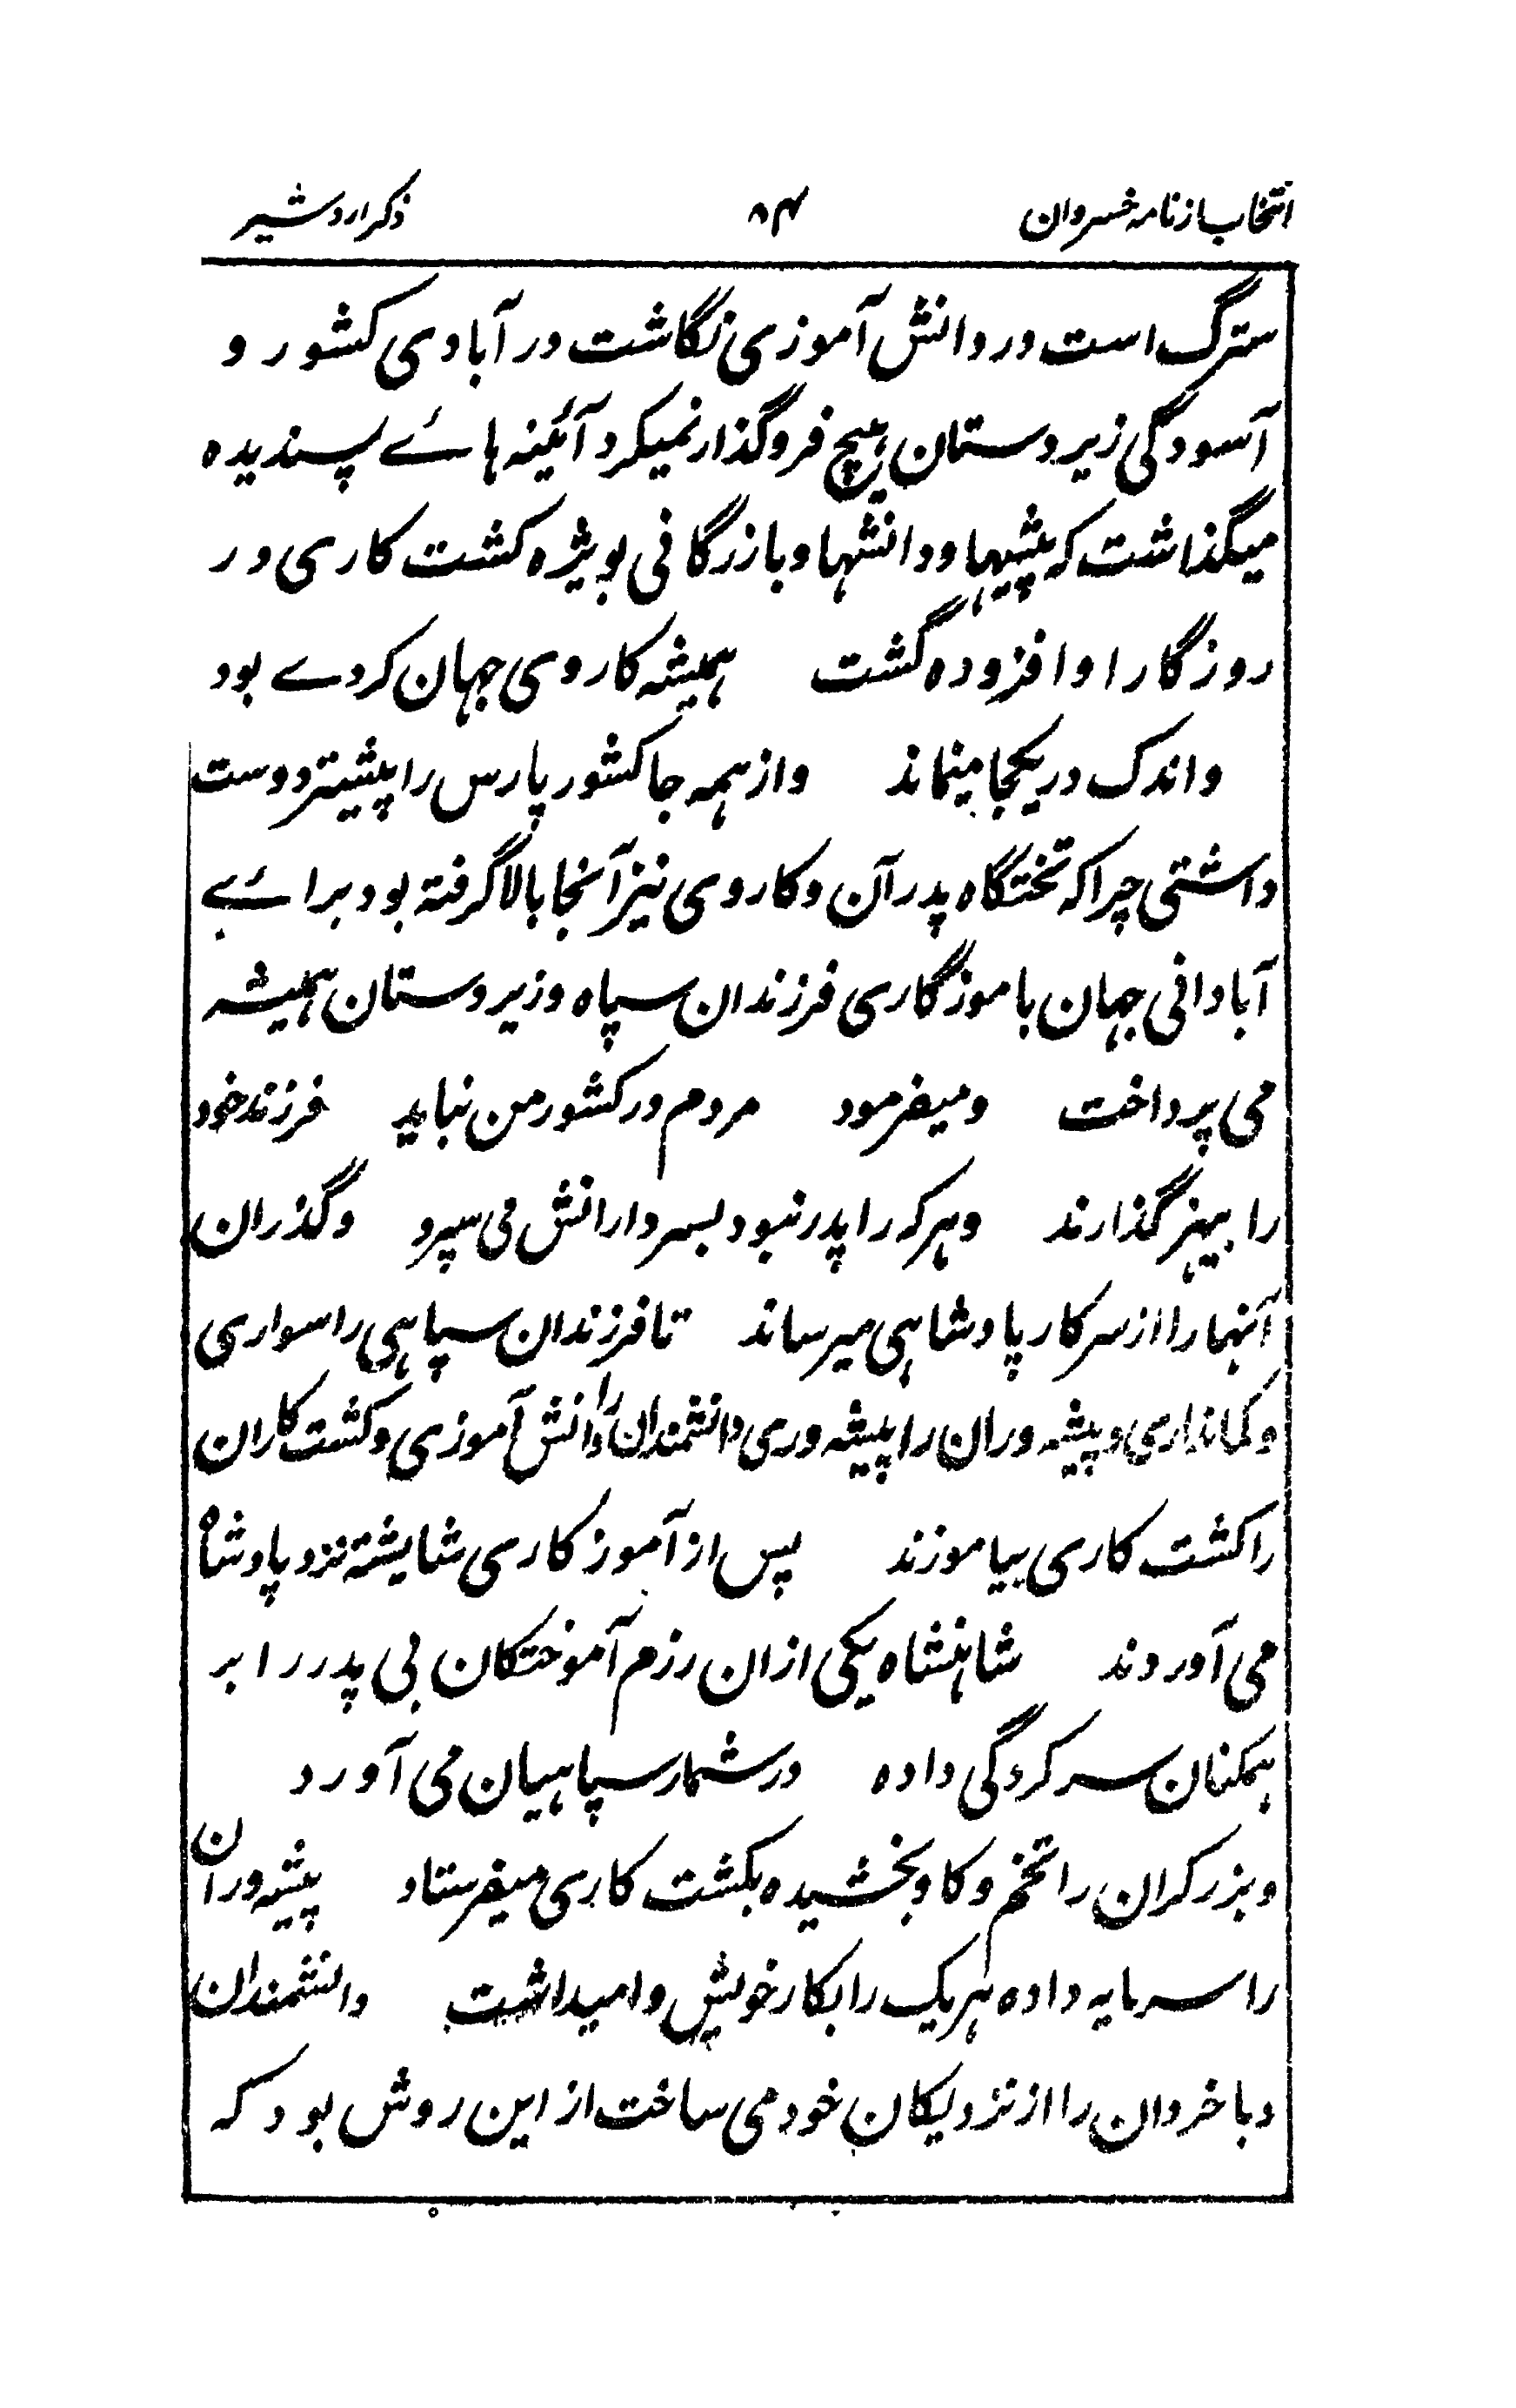 انتخاب از نامه خسروان ۸۴ ذکر اردشیر
سترگ است در دانش آموزی نگاشت در آبادی کشور و
آسودگی زیردستان هیچ فروگذار نمیکرد آئینه هائے پسندیده
میگذاشت که پیشیها و دانشها و بازرگانی بویژه کشت کاری در
روزگار او افزوده گشت همیشه کاروی جهان کردے بود
و اندک در یکجا میماند و از همه جا کشور پارس را پیشتر دوست
داشتی چرا که تختگاه پدر آن و کاروی نیز آنجا بالا گرفته بود برائے
آبادانی جهان بآموزگاری فرزندان سپاه و زیردستان همیشه
می پرداخت و میفرمود مردم در کشور من نباید فرزند خود
را بیهنر گذارند و هر که را پدر نبود بسردارانش می سپرد و گذران
آنها را از سرکار پادشاهی میرساند تا فرزندان سپاهی را سواری
و کمانداری و پیشه وران را پیشه وری دانشمندان را دانش آموزی و کشت کاران
را کشت کاری بیاموزند پس از آموزکاری شایشته نزد پادشاه
می آوردند شاهنشاه یکی ازان رزم آموختکان بی پدر را بر
همکنان سرکردگی داده در شمار سپاهیان می آورد
و بزرکران را تخم و کاو بخشیده بکشت کاری میفرستاد پیشه وران
را سرمایه داده هر یک را بکار خویش وامیداشت دانشمندان
و باخردان را از نزدیکان خود می ساخت از این روش بود که